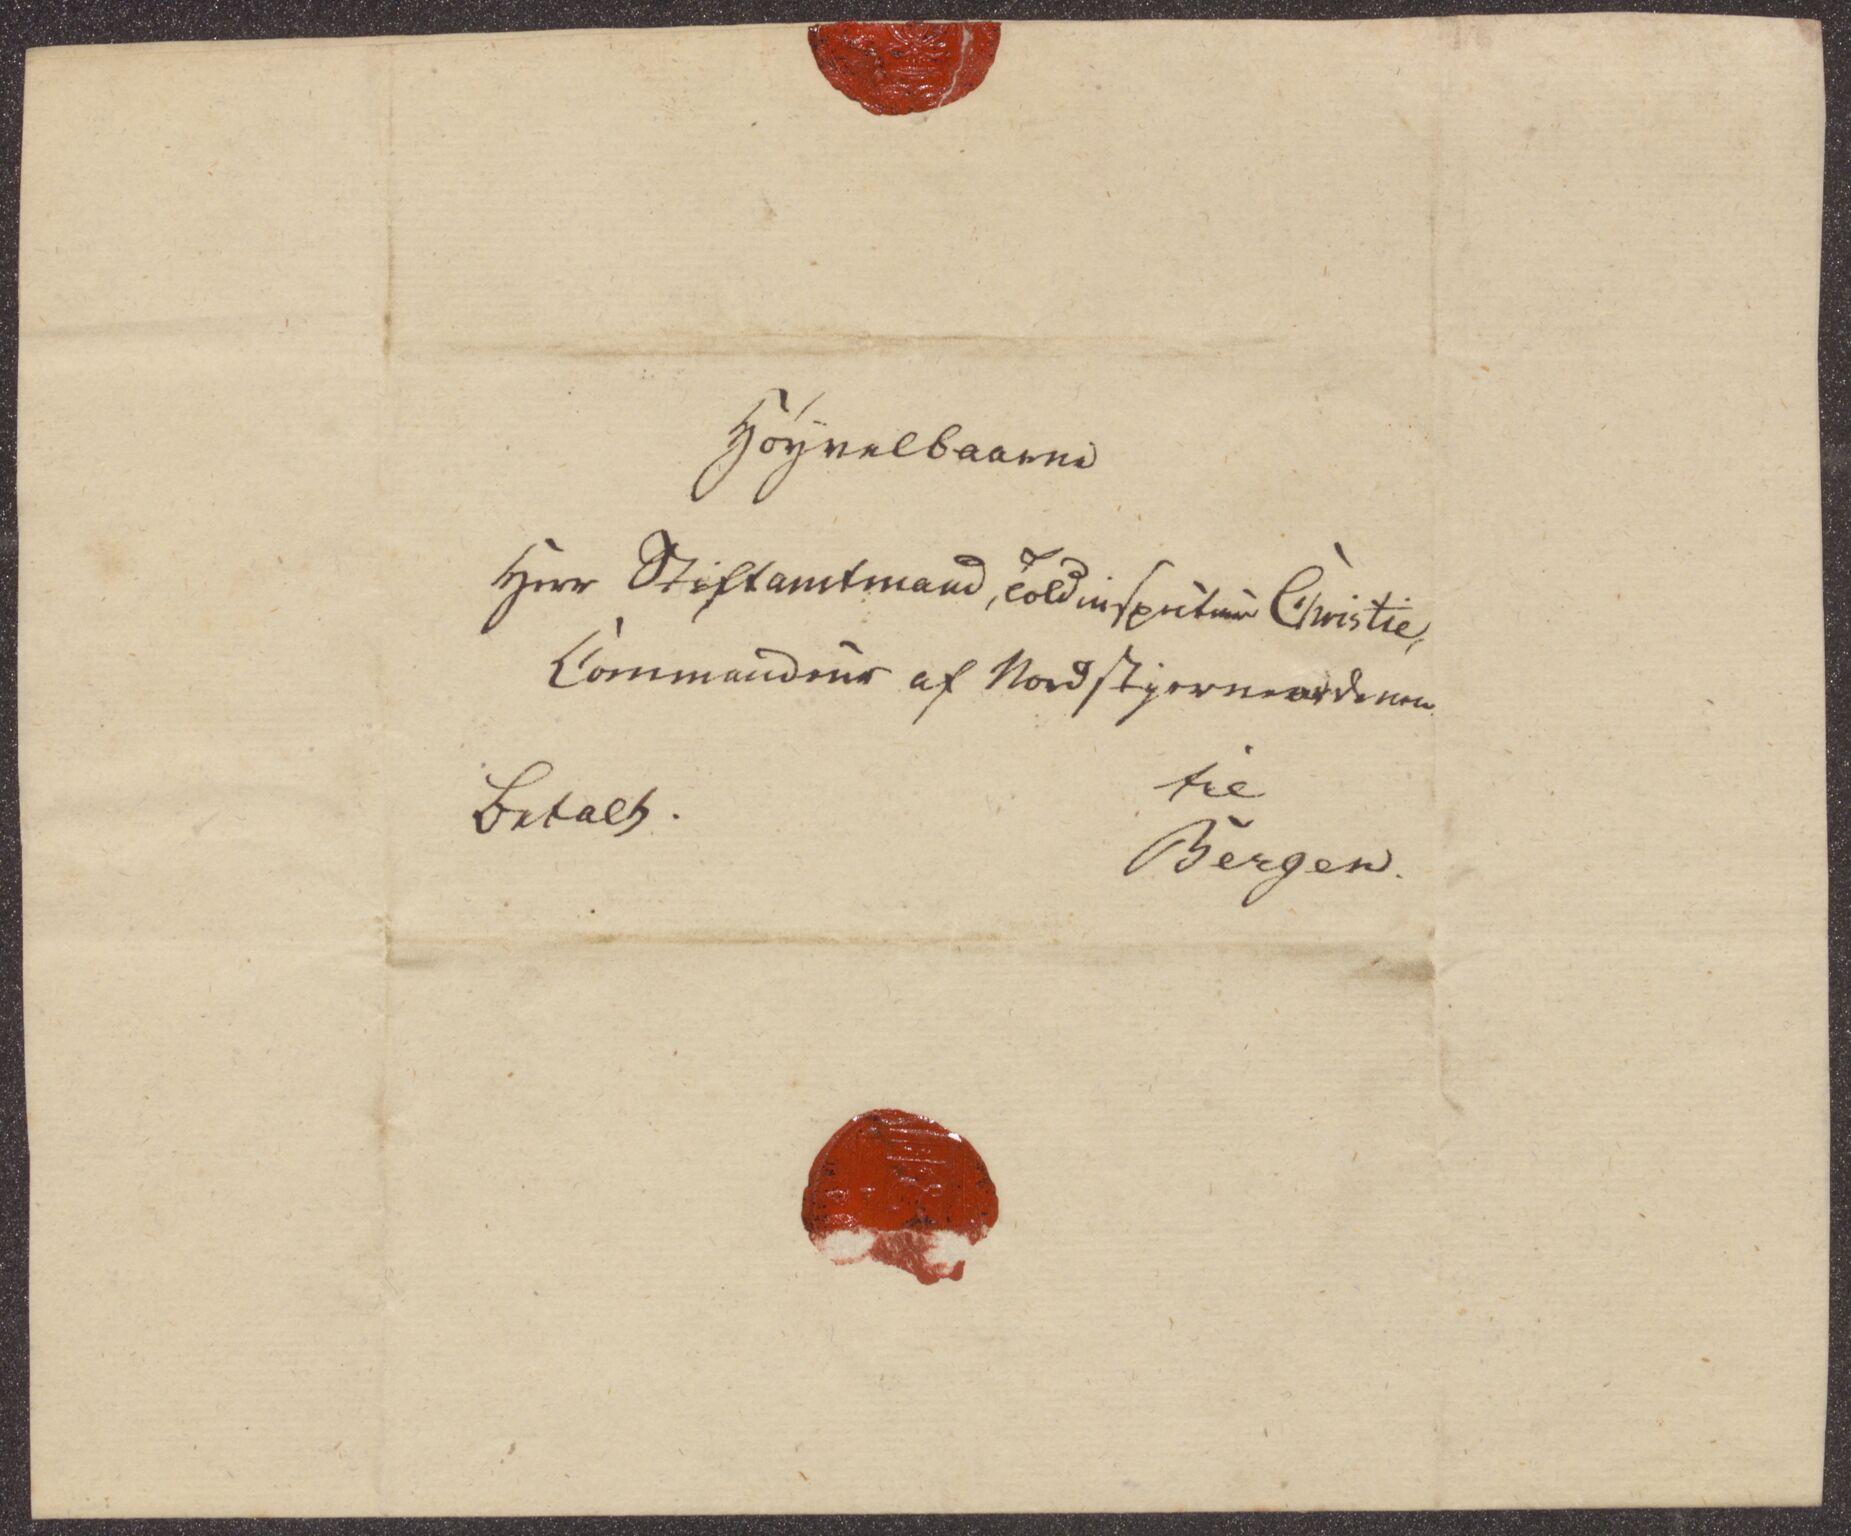 Höyvelbaarne
Herr Stiftamtmand, Toldinspecteur Christie,
Commandeur af Nordstjerneordenen
til
Betalt.
Bergen.